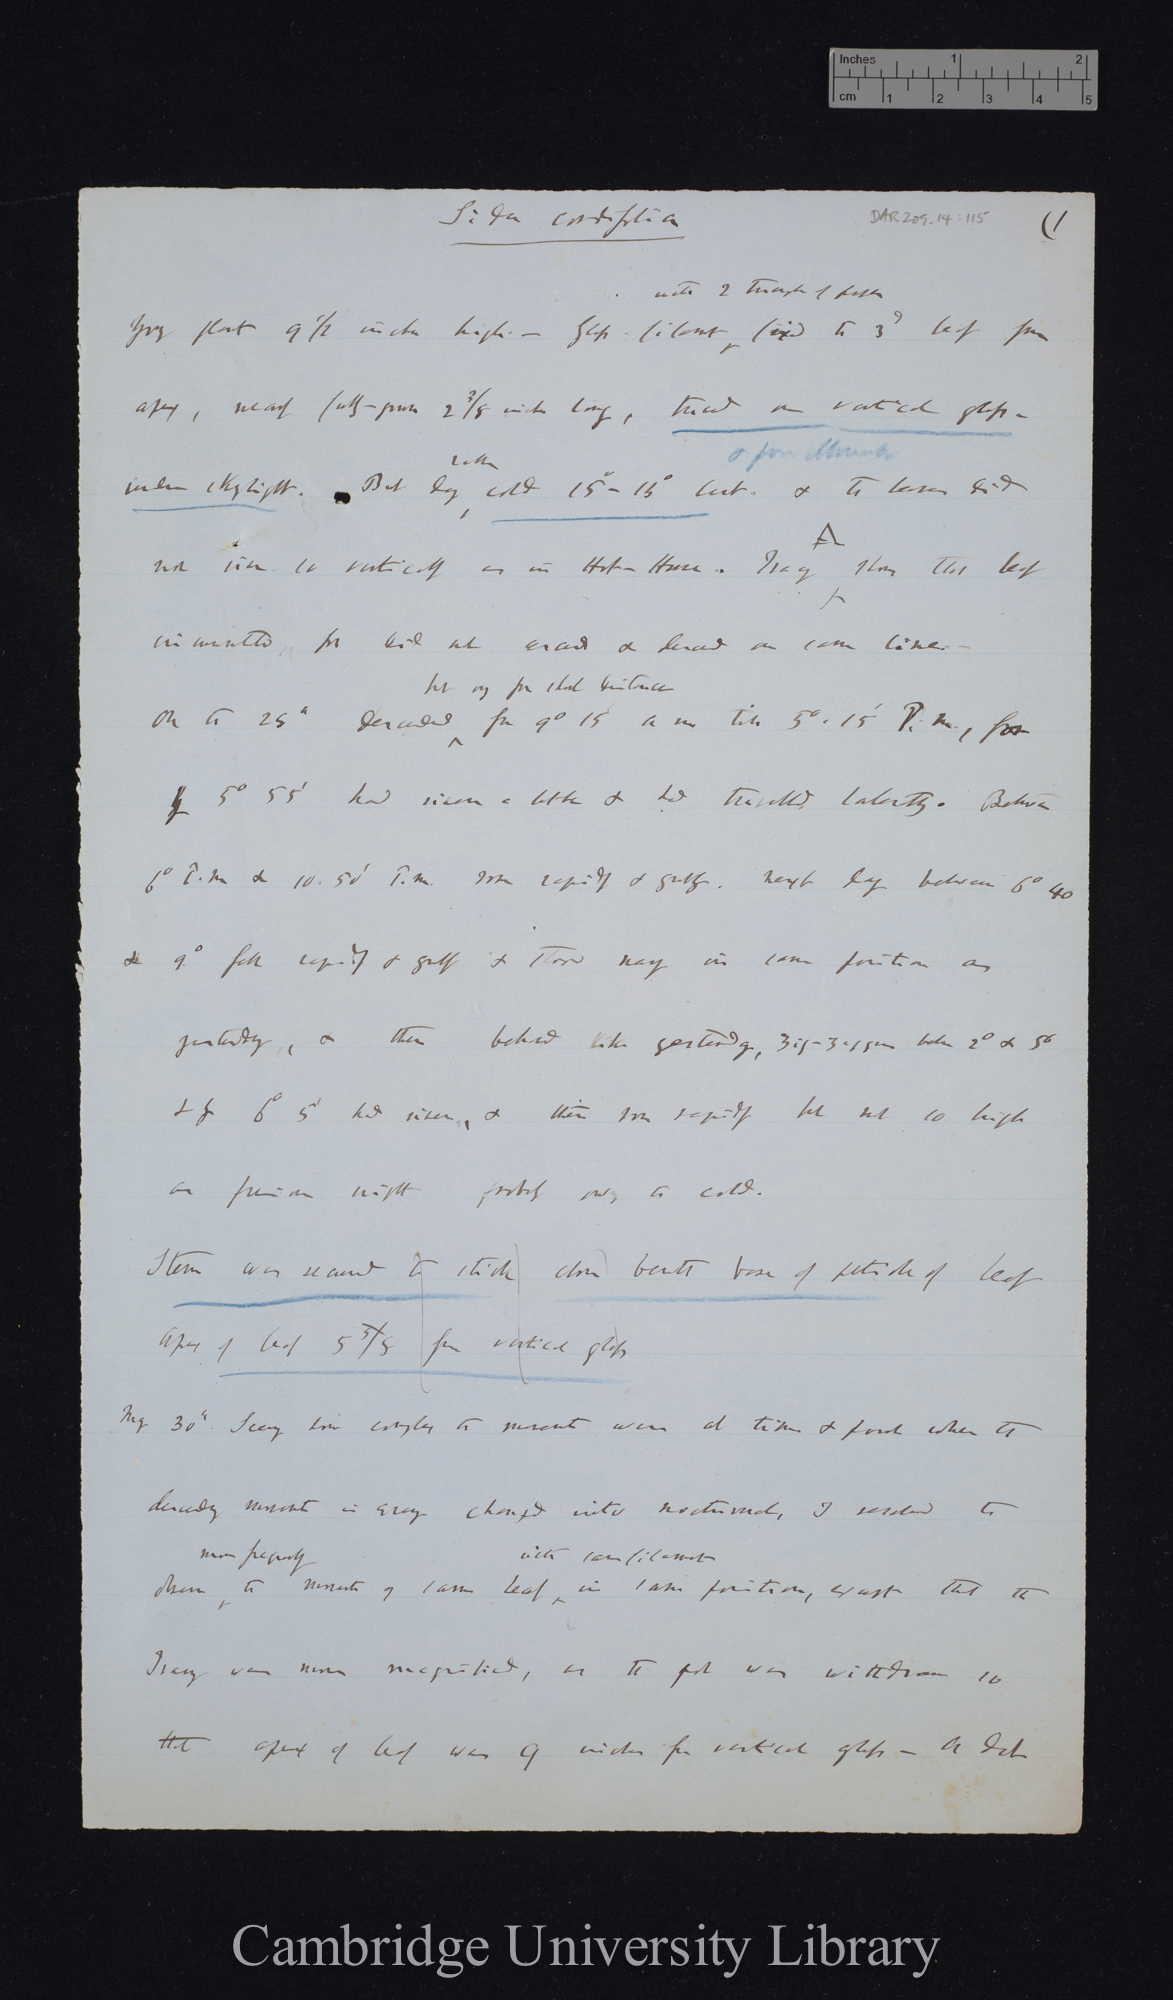 Inches 1 2
cm 1 2 3 4 5
Sida cordifolia
DAR 209.14:115
(1
with 2 triangles of paper
Young plant 9 1/2 inches high — Glass-filament, fixed to 3d leaf from
apex, nearly full-grown 2 3/8 inches long, traced on vertical glass —
& found
rather
under skylight. But day cold 15° – 16° Cent. & the leaves did
A
not rise so vertically as in Hot-House. Tracing shows that leaf
for did not ascend & descend on same line —
but only for short distance
On the 25th descended from 9° 15 a m till 5° 15' P.m, for
by 5° 55' had risen a little & had travelled laterally. Between
6° P.m & 10. 50' P.m. rose rapidly & greatly. next day between 6° 40
& 9° fell rapidly & greatly & stood nearly in same position as
yesterday, & then behaved like yesterday, zig-zagging between 2° & 5°
& by 6° 5' had risen, & then rose rapidly but not so high
as previous night probably owing to cold.
Stem was secured to stick close beneath base of petiole of leaf
Apex of leaf 5 3/8 from vertical glass
May 30th Seeing how complex the movements were at times & found when the
descending movement in evening changed into nocturnal, I resolved to
more frequently with same filament
observe the movements of same leaf in same position, except that the
Tracing was more magnified, as the pot was withdrawn so
that apex of leaf was 9 inches from vertical glass — A dot
Cambridge University Library